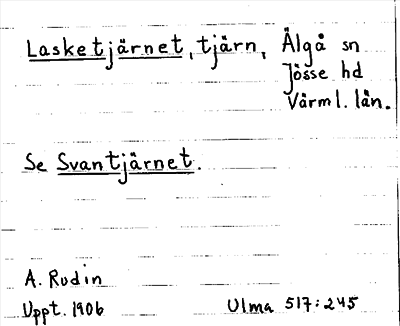 Lasketjärnet, tjärn, Älgå sn
Jösse hd
Värml. län.
Se Svantjärnet.
A. Rudin
Uppt. 1906
Ulma 517:245